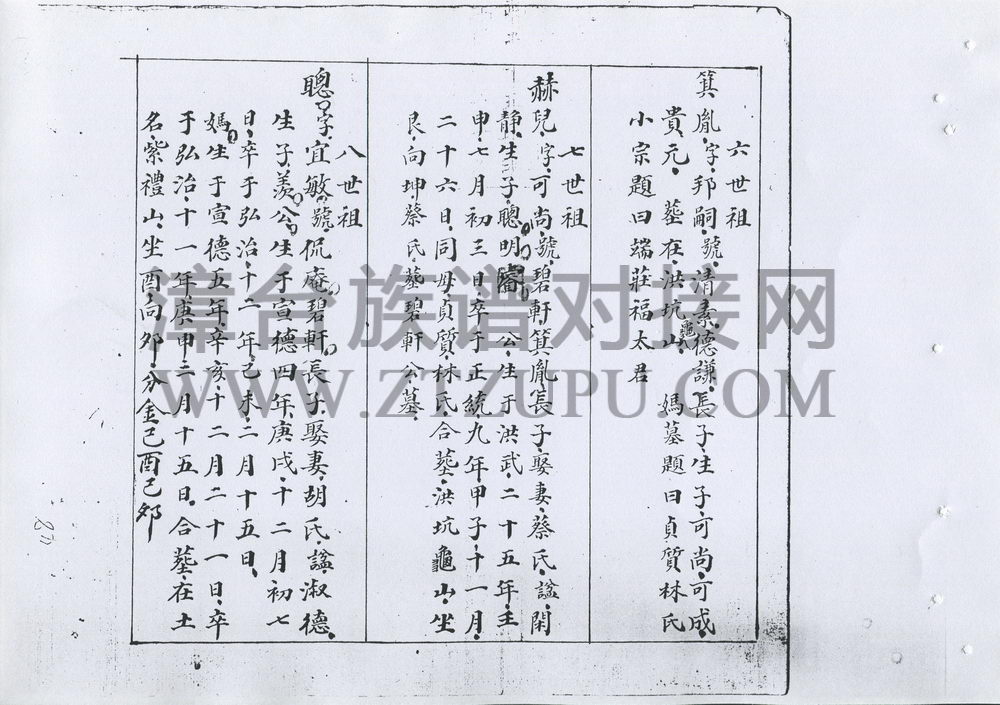 六世祖
箕胤字邦嗣號清素德謙長子生子可尚可成
貴元墓在洪坑龜山 媽墓題曰貞質林氏
小宗題曰端莊福太君
七世祖
赫兒字可尚號碧軒箕胤長子娶妻蔡氏謚閑
靜生子聰明 公生于洪武二十五年壬
申七月初三日卒于正統九年甲子十一月
二十六日同母貞質林氏合墓洪坑龜山坐
艮向坤蔡氏墓碧軒公墓
八世祖
聰字宜敏號侃庵碧軒長子娶妻胡氏謚淑德
生子羨公生于宣德四年庚戌十二月初七
日卒于弘治十二年己未二月十五日
媽生于宣德五年辛亥十二月二十一日卒
于弘治十一年庚申二月十五日合墓在土
名紫禮山坐酉向夘分金己酉己夘
漳台族谱对接网
WWW.ZTZUPU.COM